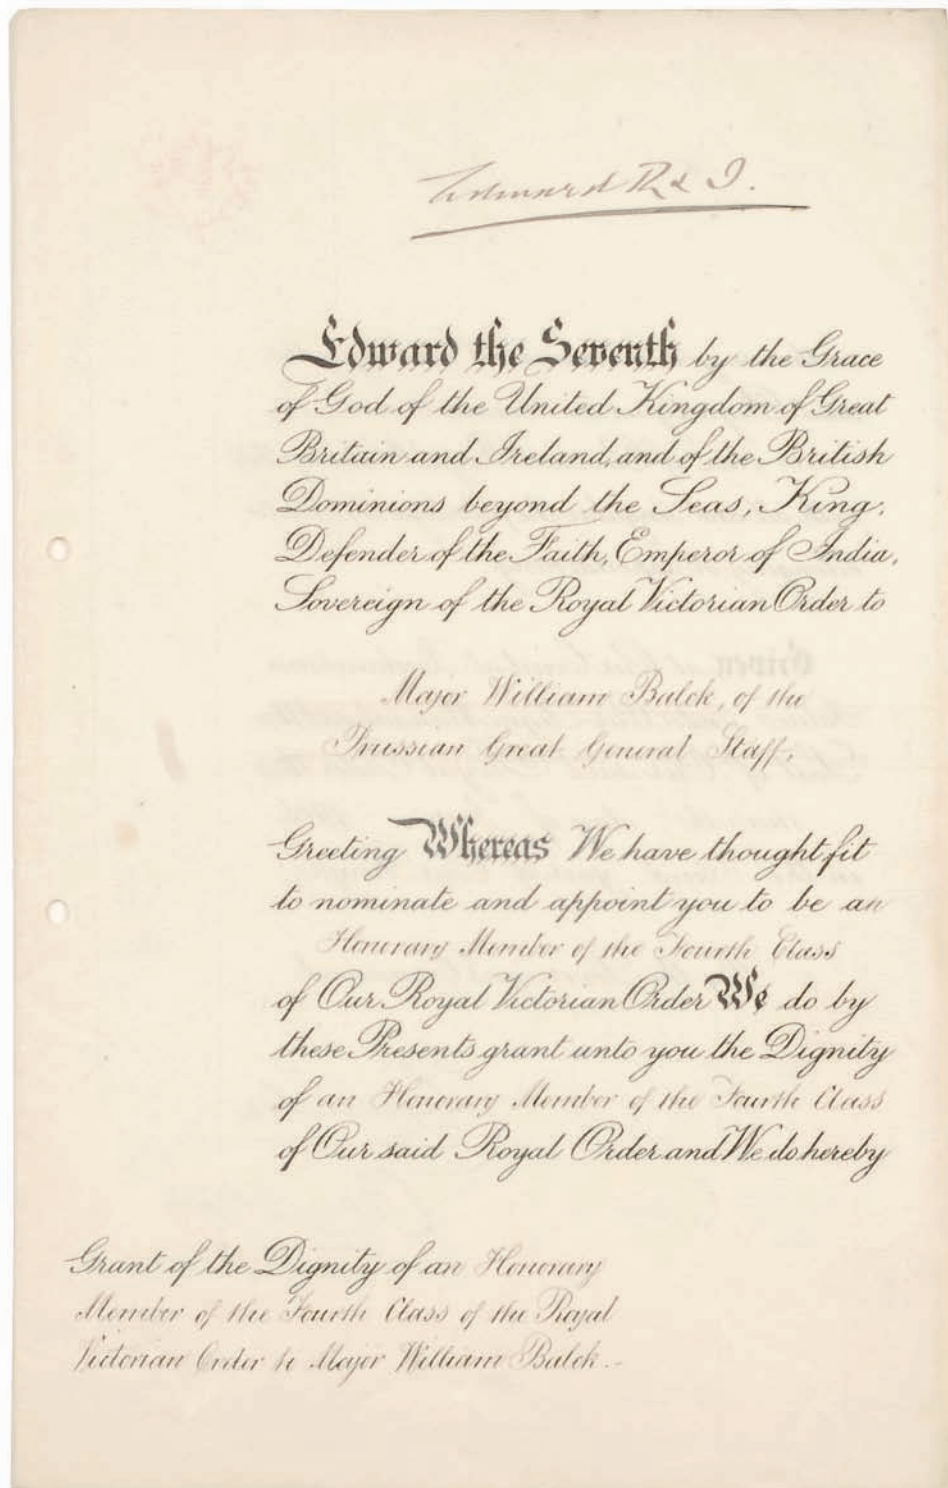 Edward R & I.
Edward the Seventh by the Grace
of God of the United Kingdom of Great
Britain and Ireland, and of the British
Dominions beyond the Seas, King,
Defender of the Faith, Emperor of India,
Sovereign of the Royal Victorian Order to
Major William Balck, of the
Prussian Great General Staff,
Greeting Whereas We have thought fit
to nominate and appoint you to be an
Honorary Member of the Fourth Class
of Our Royal Victorian Order We do by
these Presents grant unto you the Dignity
of an Honorary Member of the Fourth Class
of Our said Royal Order and We do hereby
Grant of the Dignity of an Honorary
Member of the Fourth Class of the Royal
Victorian Order to Major William Balck.-